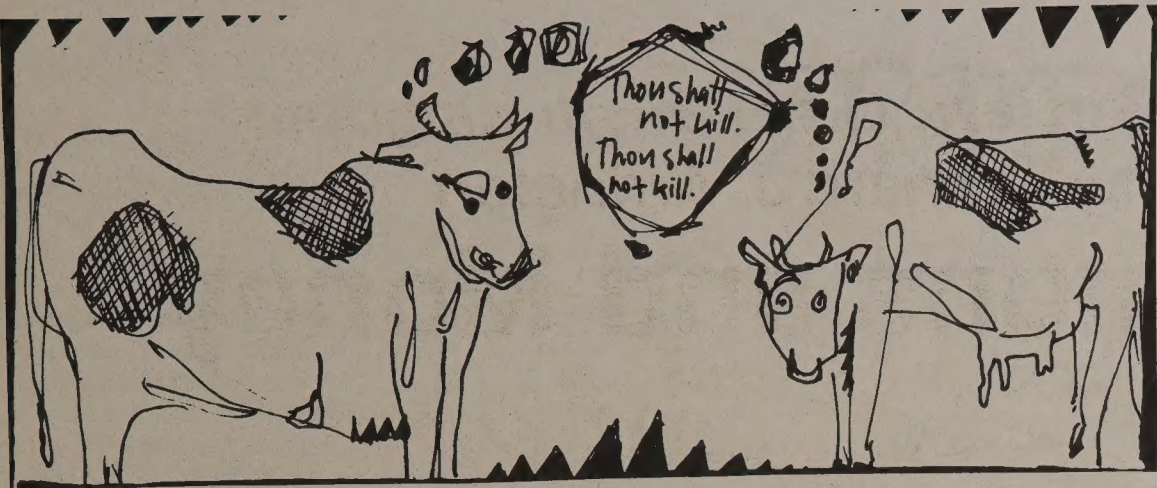 Thou shalt
not kill.
Thou shall
not kill.